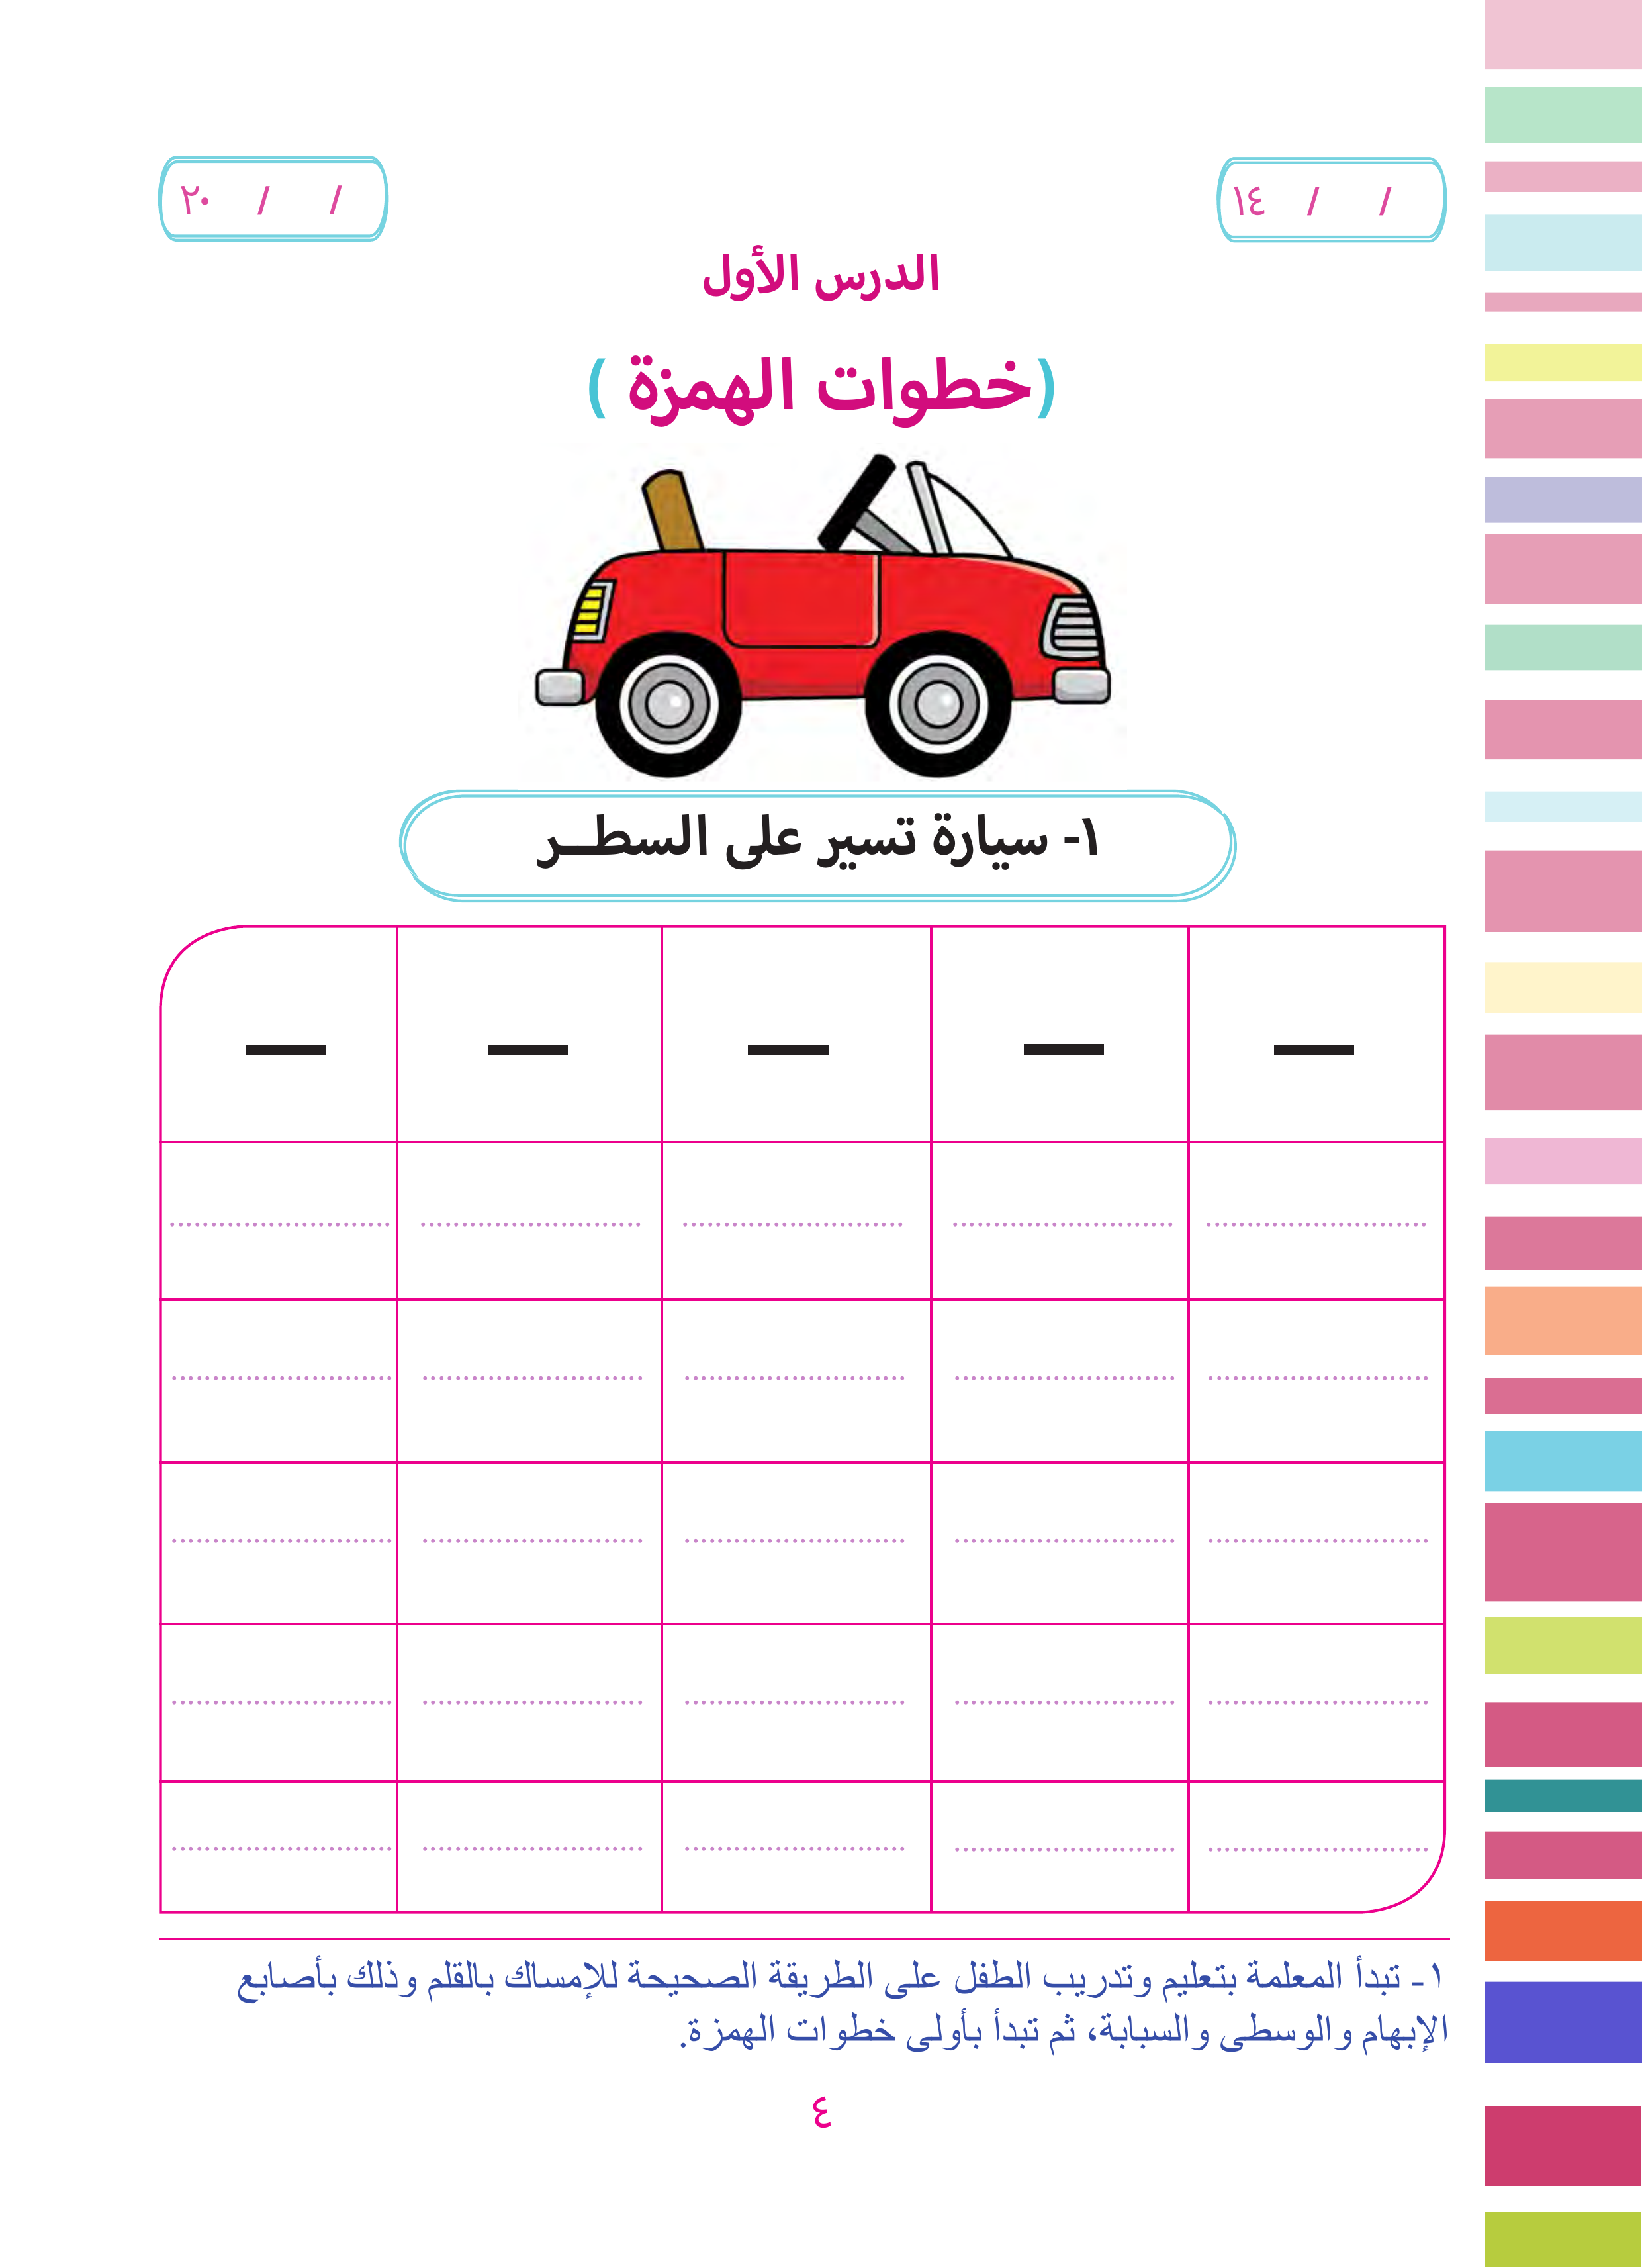 / / ١٤
/ / ٢٠
الدرس الأول
(خطوات الهمزة )
١- سيارة تسير على السطــر
١- تبدأ المعلمة بتعليم وتدريب الطفل على الطريقة الصحيحة للإمساك بالقلم وذلك بأصابع
الإبهام والوسطى والسبابة، ثم تبدأ بأولى خطوات الهمزة.
٤